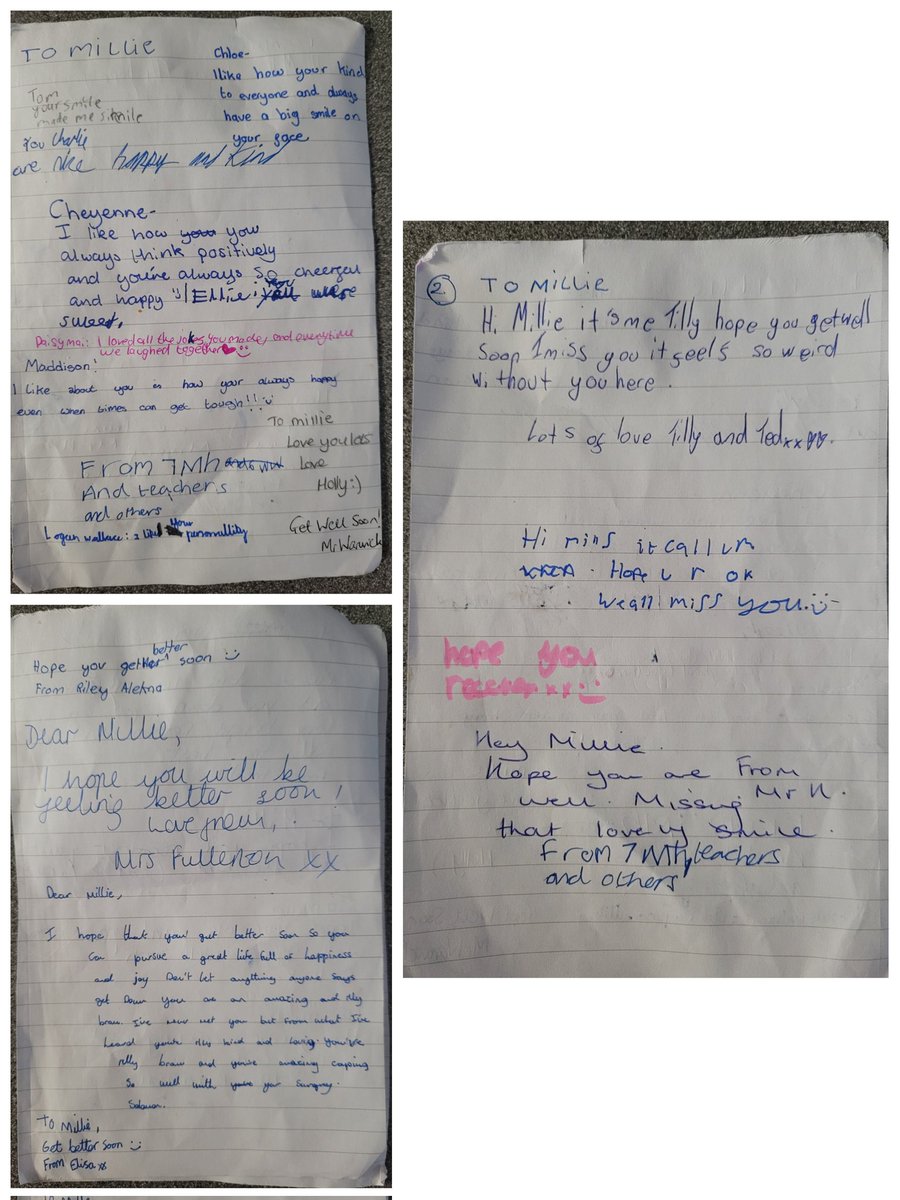 TO MILLIE
Chloe-
I like how your kind
to everyone and always
have a big smile on
your face
Tom
your smile
made me smile
You Charlie
are nice happy and kind
Cheyenne-
I like how you you
always think positively
and you're always so cheerful
and happy :) Ellie: You were
sweet.
Daisymai: I loved all the jokes you made, and everytime
we laughed together
Maddison!
I like about you is how your always happy
even when times can get tough!! :)
To millie
Love you lots
Love
Holly :)
From 7Mh
And teachers
and others
Logan wallace: I like Your personallity
Get Well Soon!
Mr Warwick
2.
TO MILLIE
Hi Millie it's me Tilly hope you get well
soon I miss you it feels so weird
without you here.
Lots of love Tilly and Ted xx
Hi mills it
Hope u r ok
we all miss you. :)
hope you
xx :)
Hey Millie.
Hope you are
well. Missing
that lovely smile.
From
Mr H.
From 7Mh, teachers
and others
Hope you get better soon :)
From Riley
Dear Millie,
I hope you will be
feeling better soon!
Love from,
Mrs Fullerton xx
Dear Millie,
I hope that you get better soon so you
can pursue a great life full of happiness
and joy Don't let anything anyone says
get Down you are an amazing and rlly
brave. I've never met you but from what I've
heard you're rlly kind and loving. You're
rlly brave and you're amazing coping
so well with your surgery.
Solomon.
To Millie,
Get better soon :)
From Elisa xx